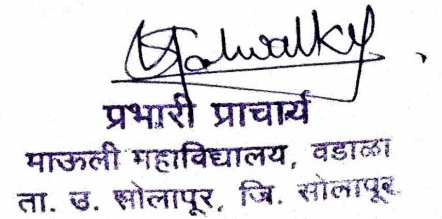 प्रभारी प्राचार्य
माऊली महाविद्यालय, वडाळा
ता. उ. सोलापूर, जि. सोलापूर